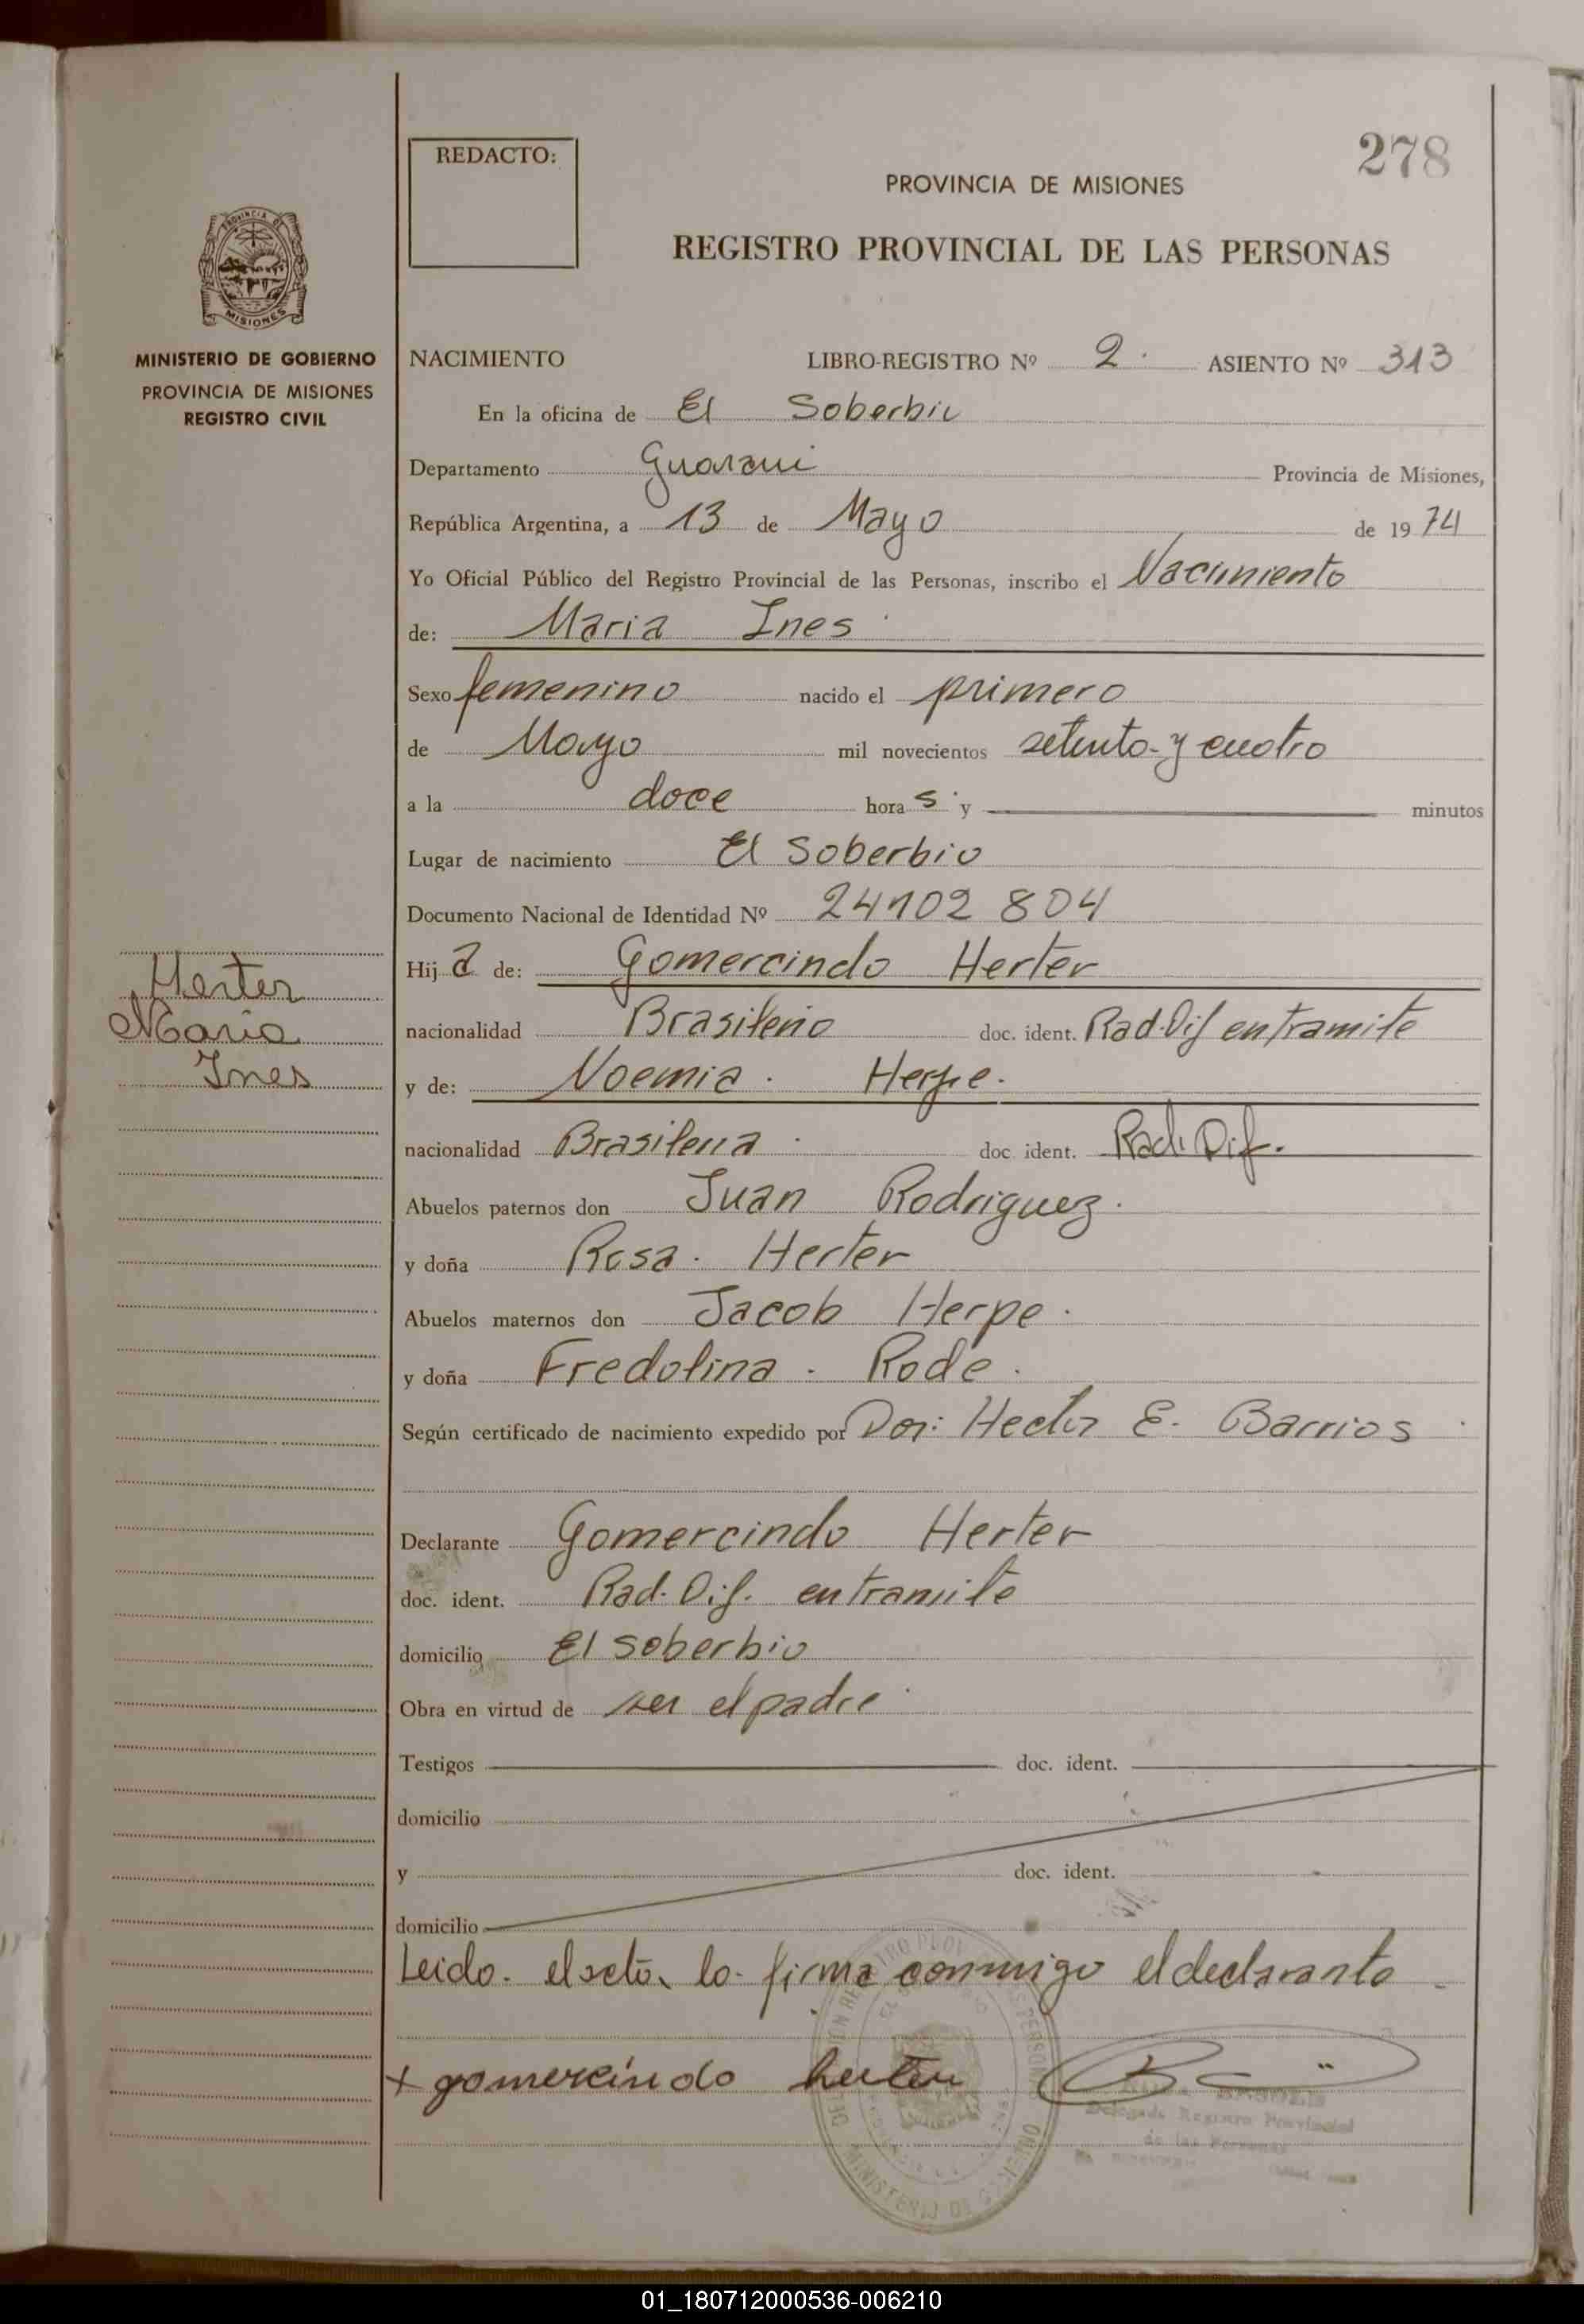 278
REDACTO:
PROVINCIA DE MISIONES
REGISTRO PROVINCIAL DE LAS PERSONAS
PROVINCIA DE
MISIONES
MINISTERIO DE GOBIERNO
PROVINCIA DE MISIONES
REGISTRO CIVIL
NACIMIENTO LIBRO-REGISTRO Nº 2. ASIENTO Nº 313
En la oficina de El Soberbio
Departamento Guarani Provincia de Misiones,
República Argentina, a 13 de Mayo de 1974
Yo Oficial Público del Registro Provincial de las Personas, inscribo el Nacimiento
de: Maria Ines
Sexo femenino nacido el primero
de Mayo mil novecientos setenta y cuatro
a la doce hora s y minutos
Lugar de nacimiento El Soberbio
Documento Nacional de Identidad Nº 24102 804
Hij a de: Gomercindo Herter
nacionalidad Brasileño doc. ident. Rad. Dif en tramite
y de: Noemia. Herpe.
nacionalidad Brasilena doc. ident. Rad. Dif.
Abuelos paternos don Juan Rodriguez.
y doña Rosa. Herter
Abuelos maternos don Jacob Herpe.
y doña Fredolina. Rode.
Según certificado de nacimiento expedido por Don: Hector E. Barrios
Declarante Gomercindo Herter
doc. ident. Rad. Dif. en tramite
domicilio El Soberbio
Obra en virtud de ser el padre
Testigos doc. ident.
domicilio
y doc. ident.
domicilio
Leido. el acto, lo firma conmigo el declarante
+ gomercindo herter
Delegado Registro Provincial
de las Personas
Herter
Maria
Ines
01_180712000536-006210